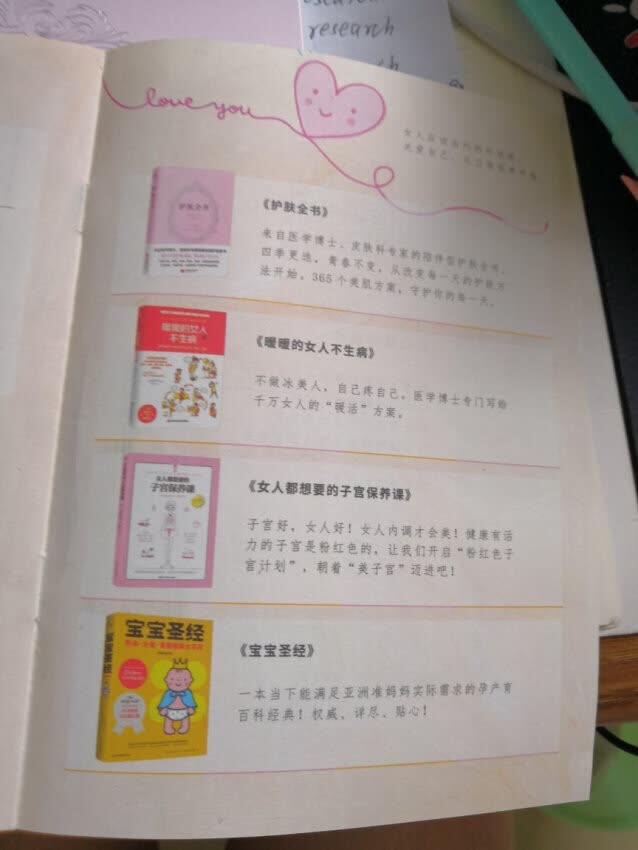 research
love you
关爱自己，
护肤全书
《护肤全书》
来自医学博士、皮肤科专家的陪伴型护肤全书。
四季更迭，青春不变，从改变每一天的护肤方
法开始。365个美肌方案，守护你的每一天。
暖暖的女人
不生病
《暖暖的女人不生病》
不做冰美人，自己疼自己。医学博士专门写给
千万女人的“暖活”方案。
女人都想要的
子宫保养课
《女人都想要的子宫保养课》
子宫好，女人好！女人内调才会美！健康有活
力的子宫是粉红色的，让我们开启“粉红色子
宫计划”，朝着“美子宫”迈进吧！
宝宝圣经
宝宝圣经
《宝宝圣经》
一本当下能满足亚洲准妈妈实际需求的孕产育
百科经典！权威、详尽、贴心！